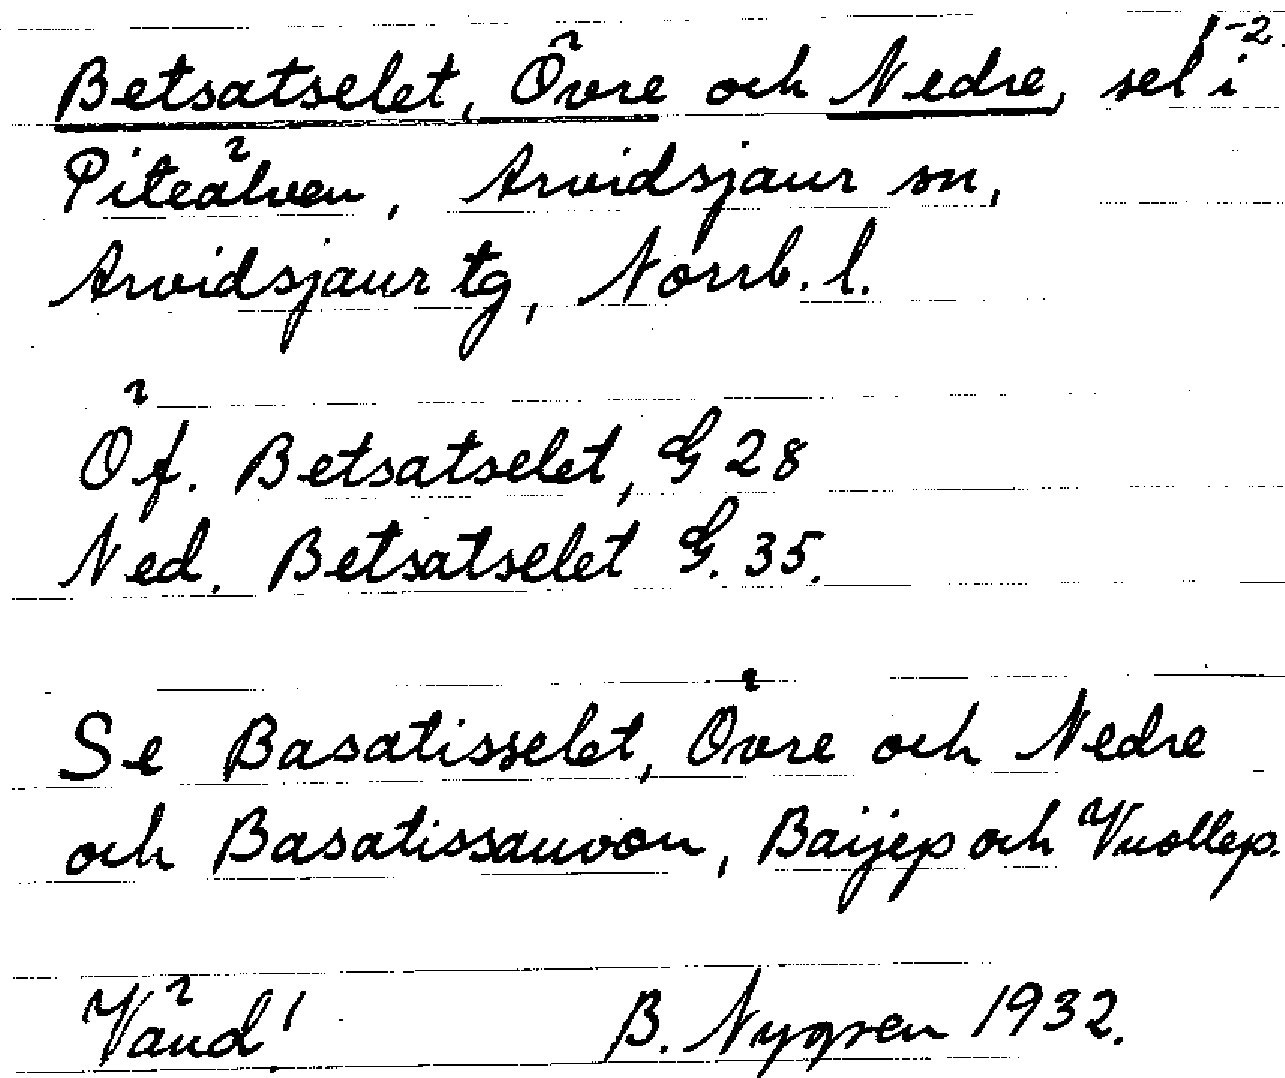 1-2.
Betsatselet, Övre och Nedre, sel i
Piteälven, Arvidsjaur sn,
Arvidsjaur tg, Norrb. l.
Öf. Betsatselet, G 28
Ned. Betsatselet G. 35.
Se Basatisselet, Övre och Nedre
och Basatissauvon, Baijep och Vuollep.
Vänd! B. Nygren 1932.